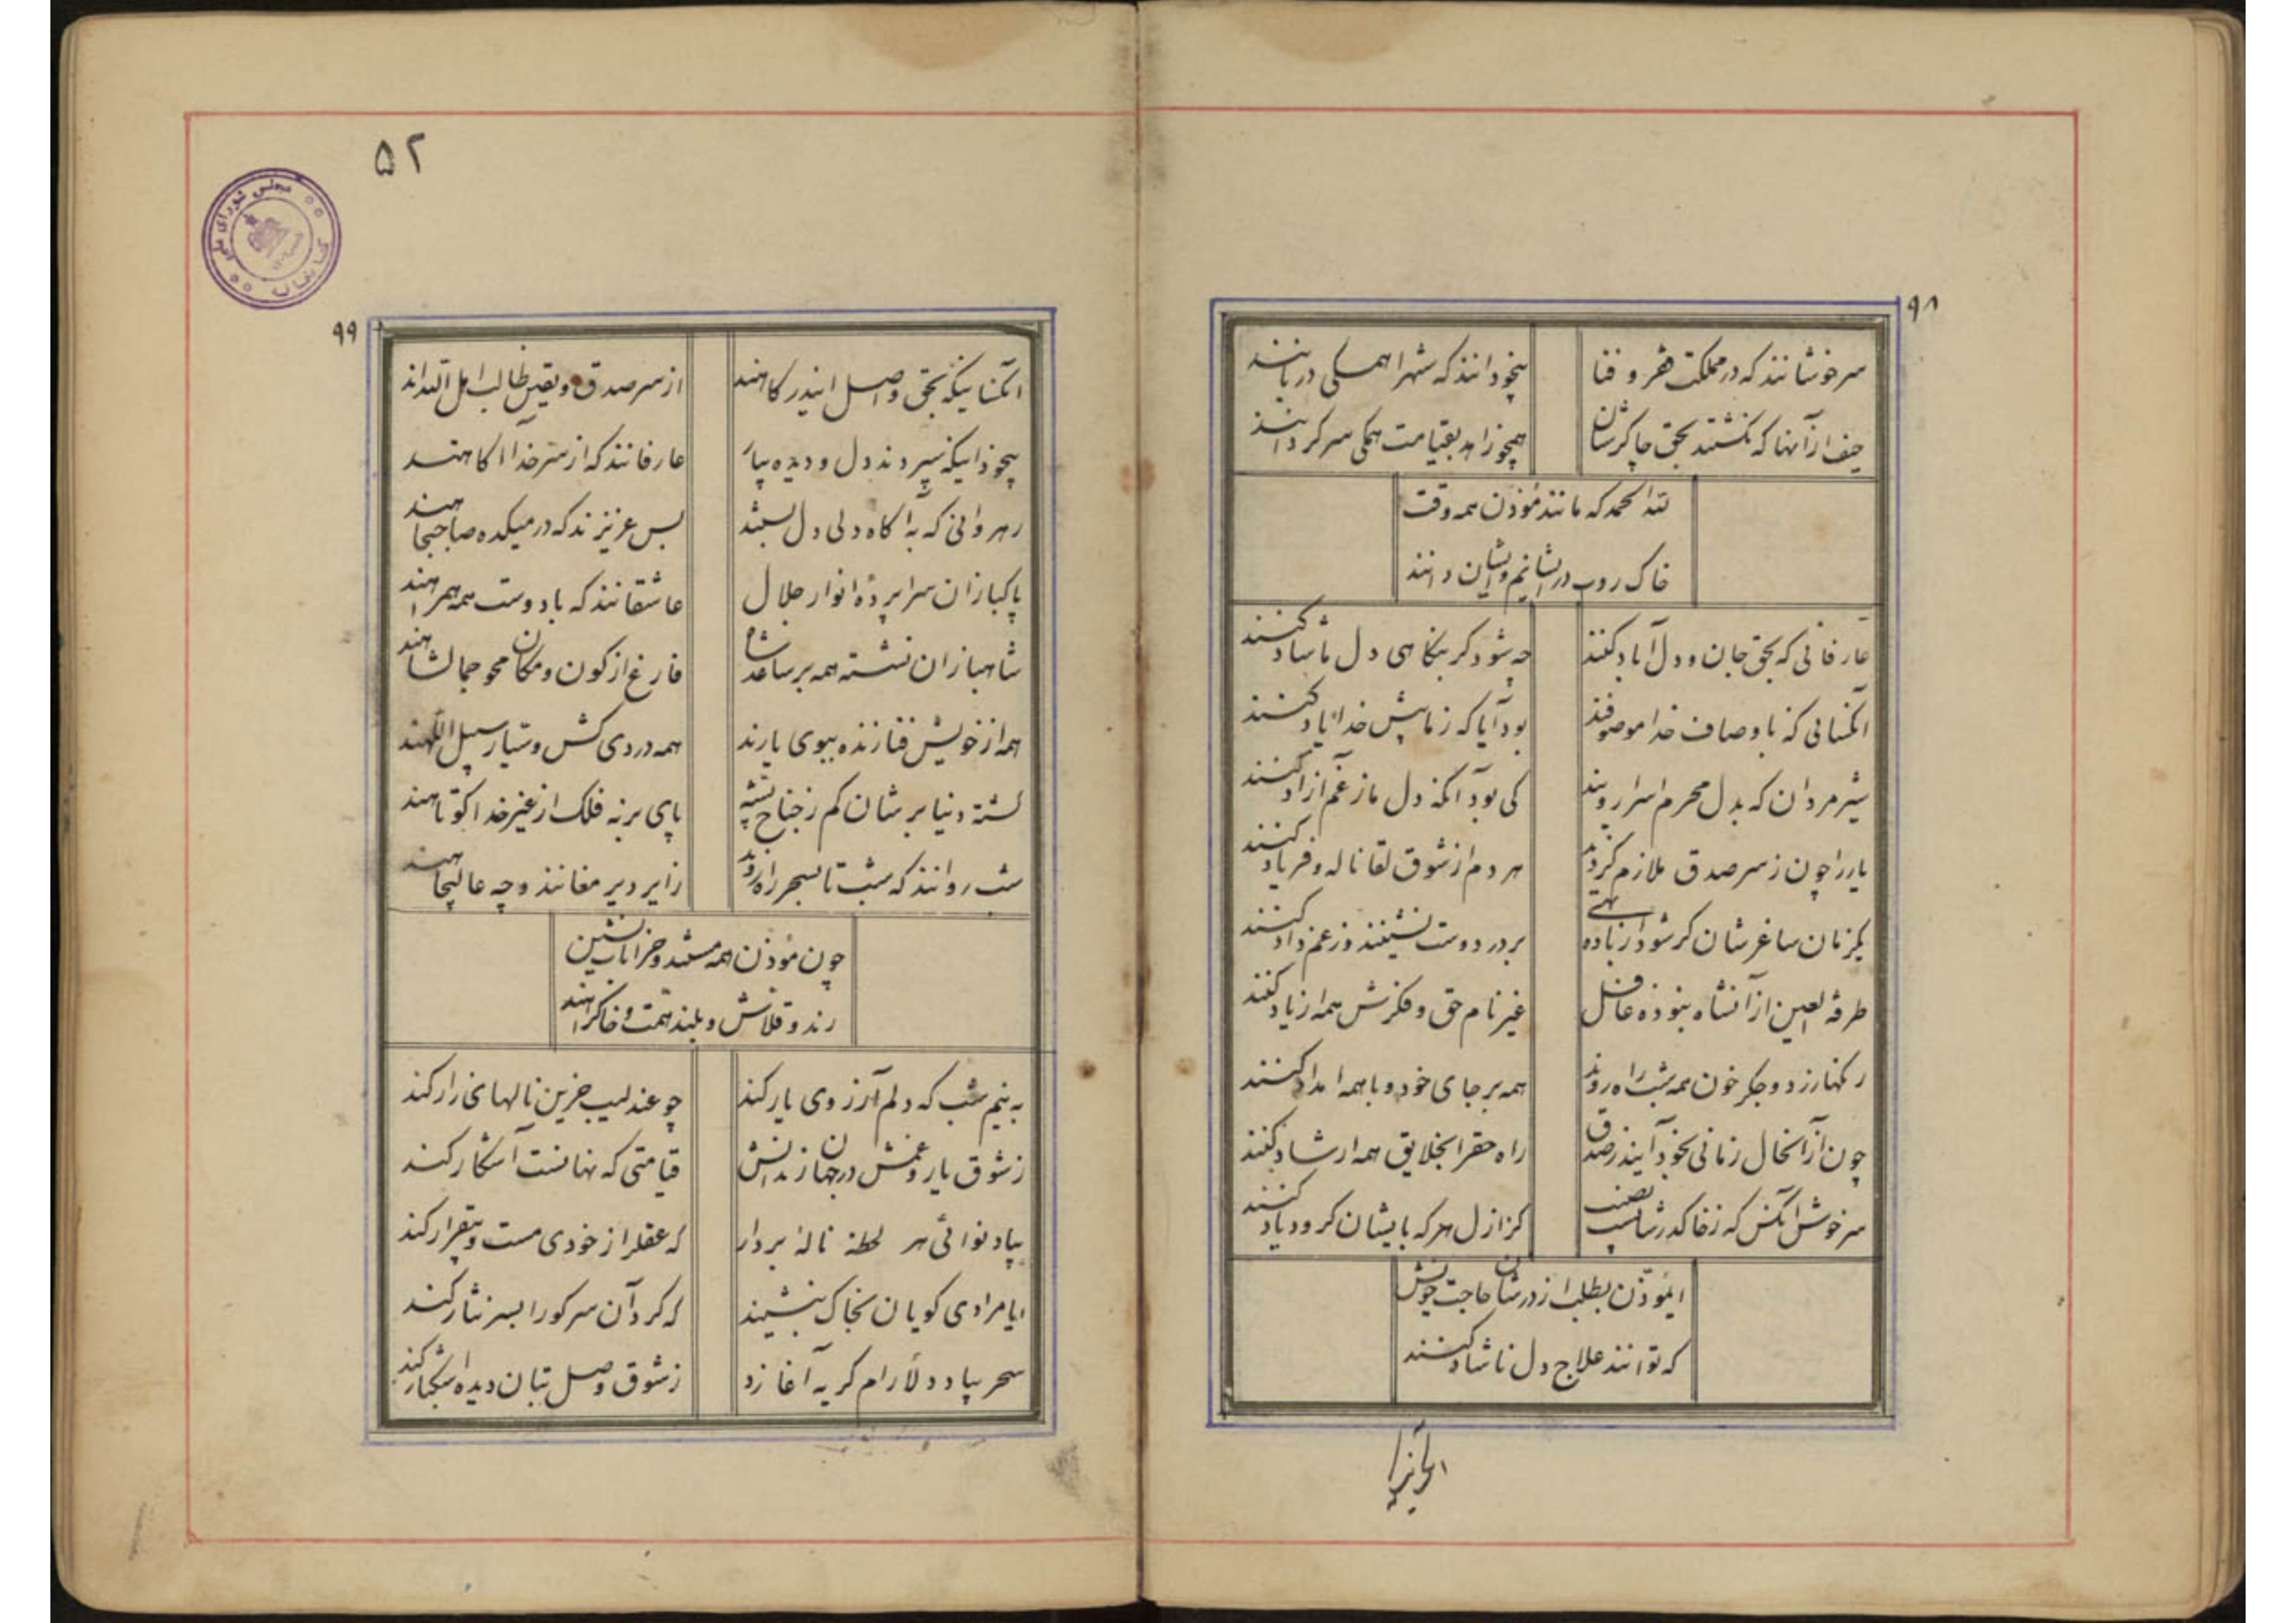 ۹۸
سرخوشانند که در مملکت فقر و فنا
بیخودانند که شهرا همکی دربانند
حیف از آنها که نکشتند بحق چاکرشان
همچو زاهد بقیامت همکی سرکردانند
لله الحمد که مانند مؤذن همه وقت
خاک روب در ایشانیم و ایشان دانند
عارفانی که بحق جان و دل آباد کنند
چه شود کر بنکاهی دل ما شاد کنند
آنکسانی که باوصاف خدا موصوفند
بود آیا که ز ما پیش خدا یاد کنند
شیر مردان که بدل محرم اسرار ویند
کی بود آنکه دل ما ز غم آزاد کنند
یار را چون ز سر صدق ملازم کردند
هر دم از شوق لقا ناله و فریاد کنند
یکزمان ساغرشان کر شود از باده تهی
بر در دوست نشینند و ز غم داد کنند
طرفة العین از آنشاه نبوده غافل
غیر نام حق و فکرش همه از یاد کنند
رنکها زرد و جکر خون همه شب راه روند
همه بر جای خود و با همه امداد کنند
چون از آنحال زمانی بخود آیند ز صدق
راه حقرا بخلایق همه ارشاد کنند
سر خوش آنکس که ز خاک درشان نصیب
کز ازل هر که بایشان کرود یاد کنند
ایمؤذن بطلب از درشان حاجت خویش
که توانند علاج دل ناشاد کنند
۵۲
۹۹
آنکسانیکه بحق واصل ایندرکاهند
از سر صدق و یقین طالب اهل اللهاند
بیخودانیکه سپردند دل و دیده بیار
عارفانند که از سر خدا آکاهند
رهروانی که به آکاه دلی دل بستند
بس عزیزند که در میکده صاحبجاهند
پاکبازان سراپردۀ انوار جلال
عاشقانند که با دوست همه همراهند
شاهبازان نشسته همه بر ساعد شاه
فارغ از کون و مکان محو جمال شاهند
همه از خویش فنا زنده ببوی یارند
همه دردی کش و سیار سبیل اللهند
کشته دنیا برشان کم ز جناح پشه
پای بر نه فلک از غیر خدا کوتاهند
شب روانند که شب تا بسحر راه روند
زایر دیر مغانند و چه عالیجاهند
چون مؤذن همه مستند و خرابات نشین
رند و قلاش و بلند همت و خاکراهند
به نیم شب که دلم آرزوی یار کند
چو عندلیب حزین نالهای زار کند
ز شوق یار و غمش در جهان زند آتش
قیامتی که نهانست آشکار کند
بیاد نوائی هر لحظه نالۀ بردار
که عقل را ز خودی مست و بیقرار کند
بنامرادی کویان بخاک بنشیند
که کرد آن سر کو را بسر نثار کند
سحر بیاد دلارام کریه آغازد
ز شوق وصل بتان دیده اشکبار کند
مجلس شورای ملی
کتابخانه